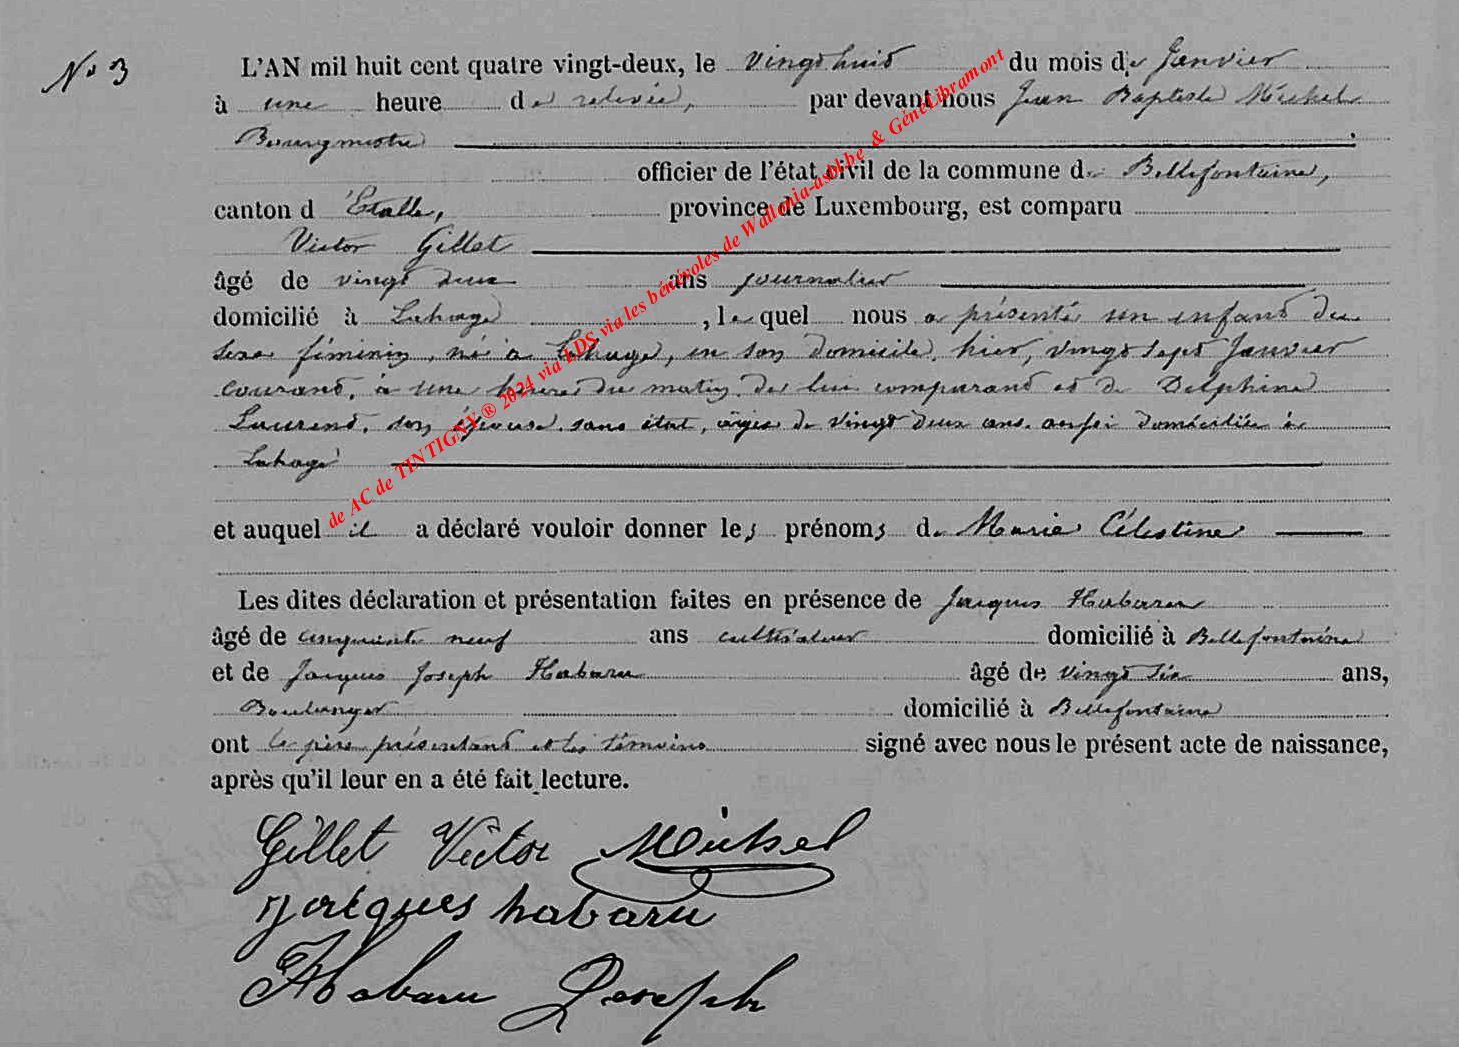 No 3
L'AN mil huit cent quatre vingt-deux, le vingt huit du mois de Janvier
à une heure de relevée, par devant nous Jean Baptiste Michel
Bourgmestre
officier de l'état civil de la commune de Bellefontaine,
canton d'Etalle, province de Luxembourg, est comparu
Victor Gillet
âgé de vingt deux ans journalier
domicilié à Lahage, lequel nous a présenté un enfant du
sexe féminin, né à Lahage, en son domicile, hier, vingt sept Janvier
courant, à une heure du matin, de lui comparant et de Delphine
Laurent, son épouse, sans état, âgée de vingt deux ans, aussi domiciliée à
Lahage
et auquel il a déclaré vouloir donner les prénoms de Marie Célestine
Les dites déclaration et présentation faites en présence de Jacques Habaru
âgé de cinquante neuf ans cultivateur domicilié à Bellefontaine
et de Jacques Joseph Habaru âgé de vingt six ans,
Boulanger domicilié à Bellefontaine
ont le père présentant et les témoins signé avec nous le présent acte de naissance,
après qu'il leur en a été fait lecture.
Gillet Victor Michel
Jacques habaru
Habaru Joseph
de AC de TINTIGNY ® 2024 via LDS via les bénévoles de Wallonia-asbl.be & GénéLibramont